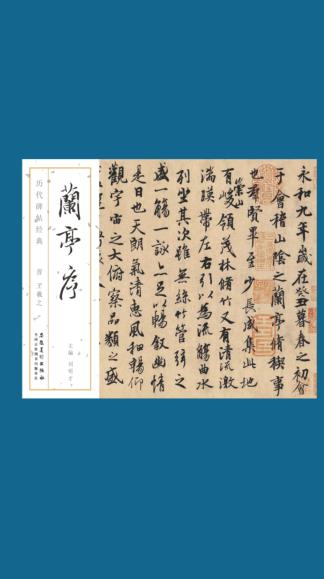 历代碑帖经典
蘭亭序
晋 王羲之
主编 胡明才
安徽美术出版社
永和九年歲在癸丑暮春之初會
于會稽山陰之蘭亭脩稧事
也羣賢畢至少長咸集此地
有崇山峻領茂林脩竹又有清流激
湍暎帶左右引以為流觴曲水
列坐其次雖無絲竹管弦之
盛一觴一詠上足以暢叙幽情
是日也天朗氣清惠風和暢仰
觀宇宙之大俯察品類之盛